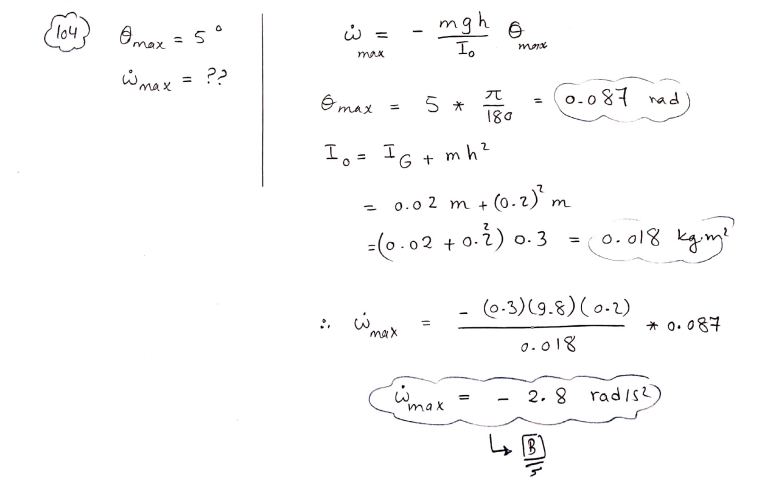 104 θmax = 5°
ω̇max = ??
ω̇max = - mgh/I₀ θmax
θmax = 5 * π/180 = 0.087 rad
I₀ = I_G + mh²
= 0.02 m + (0.2)² m
=(0.02 + 0.2²) 0.3 = 0.018 kg.m²
∴ ω̇max = -(0.3)(9.8)(0.2)/0.018 * 0.087
ω̇max = - 2.8 rad/s²
↳ B